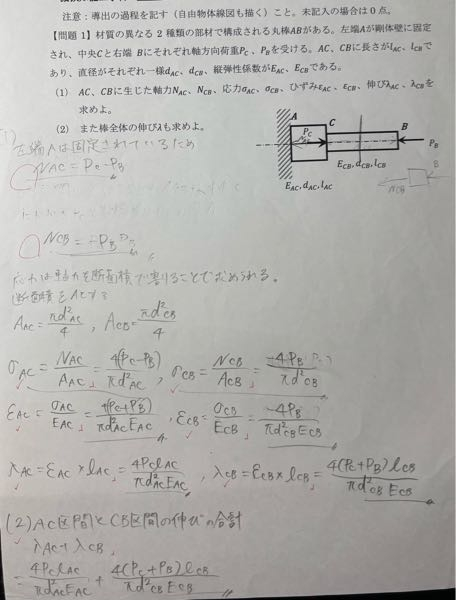 注意:導出の過程を記す(自由物体線図も描く)こと。未記入の場合は0点。
【問題1】材質の異なる2種類の部材で構成される丸棒ABがある。左端Aが剛体壁に固定
され、中央Cと右端Bにそれぞれ軸方向荷重P_C、P_Bを受ける。AC、CBに長さがl_AC、l_CBで
あり、直径がそれぞれ一様d_AC、d_CB、縦弾性係数がE_AC、E_CBである。
(1) AC、CBに生じた軸力N_AC、N_CB、応力σ_AC、σ_CB、ひずみε_AC、ε_CB、伸びλ_AC、λ_CBを
求めよ。
(2) また棒全体の伸びλも求めよ。
A
C
P_C
B
P_B
E_CB, d_CB, l_CB
E_AC, d_AC, l_AC
B
N_CB
(1)
左端Aは固定されているため
N_AC = P_C - P_B
N_CB = -P_B
応力は軸力を断面積で割ることで求められる。
断面積をAとする
A_AC = πd²_AC/4 , A_CB = πd²_CB/4
σ_AC = N_AC/A_AC = 4(P_C-P_B)/πd²_AC , σ_CB = N_CB/A_CB = -4P_B/πd²_CB
ε_AC = σ_AC/E_AC = 4(P_C+P_B)/πd²_AC E_AC , ε_CB = σ_CB/E_CB = -4P_B/πd²_CB E_CB
λ_AC = ε_AC × l_AC = 4P_C l_AC/πd²_AC E_AC , λ_CB = ε_CB × l_CB = 4(P_C+P_B)l_CB/πd²_CB E_CB
(2) AC区間とCB区間の伸びの合計
λ_AC + λ_CB
= 4P_C l_AC/πd²_AC E_AC + 4(P_C+P_B)l_CB/πd²_CB E_CB